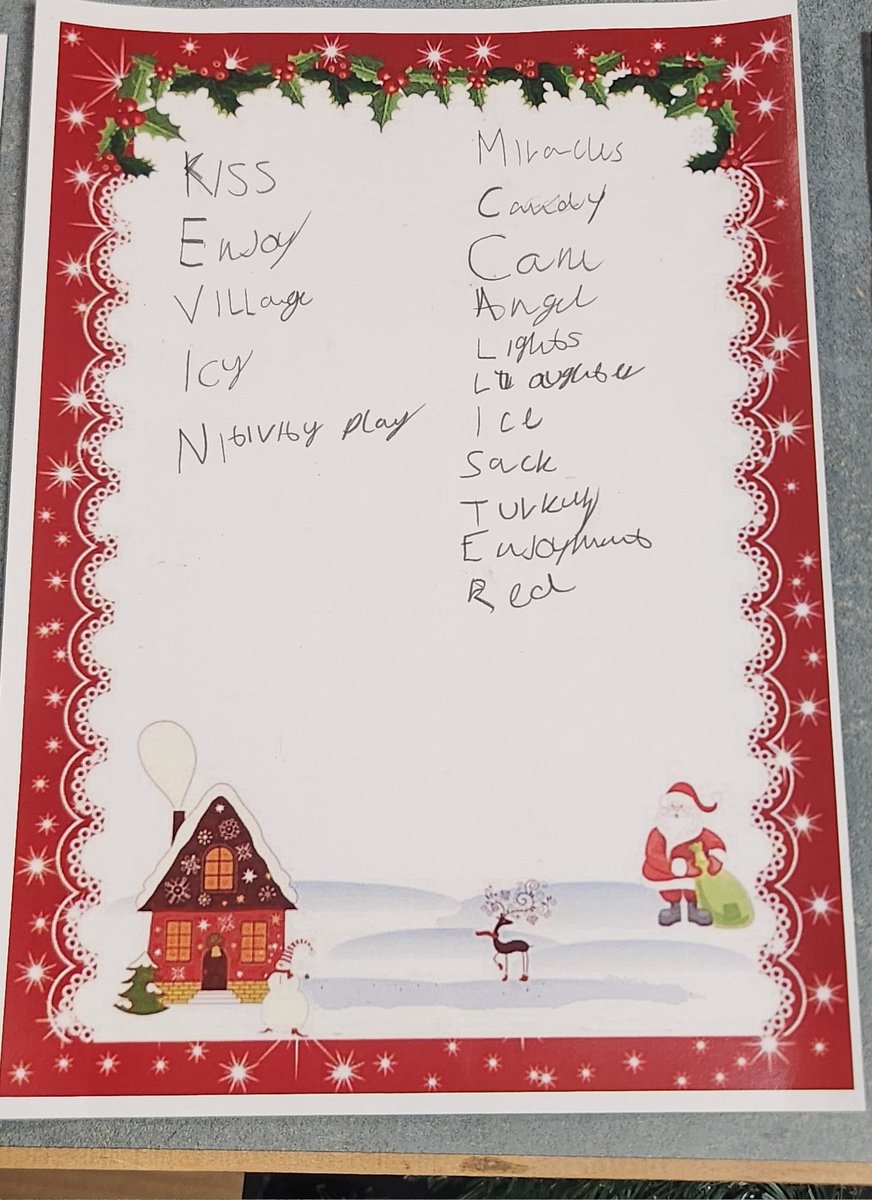 Kiss
Enjoy
Village
Icy
Nitivity play
Miracles
Candy
Cane
Angel
Lights
Laughter
Ice
Sack
Turkey
Enjoyment
Red